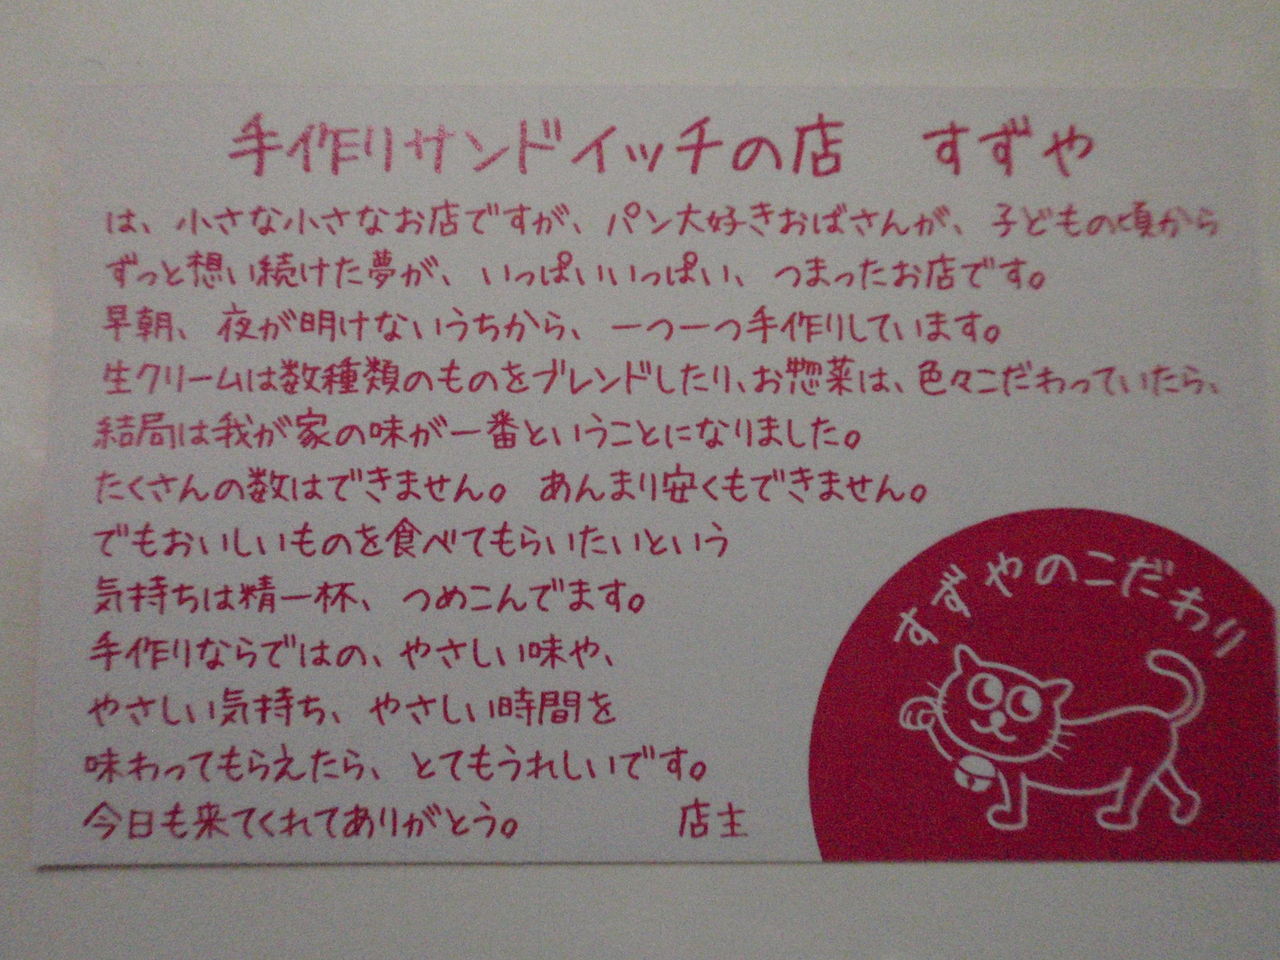 手作りサンドイッチの店 すずや
は、小さな小さなお店ですが、パン大好きおばさんが、子どもの頃から
ずっと想い続けた夢が、いっぱいいっぱい、つまったお店です。
早朝、夜が明けないうちから、一つ一つ手作りしています。
生クリームは数種類のものをブレンドしたり、お惣菜は、色々こだわっていたら、
結局は我が家の味が一番ということになりました。
たくさんの数はできません。あんまり安くもできません。
でもおいしいものを食べてもらいたいという
気持ちは精一杯、つめこんでます。
手作りならではの、やさしい味や、
やさしい気持ち、やさしい時間を
味わってもらえたら、とてもうれしいです。
今日も来てくれてありがとう。 店主
すずやのこだわり